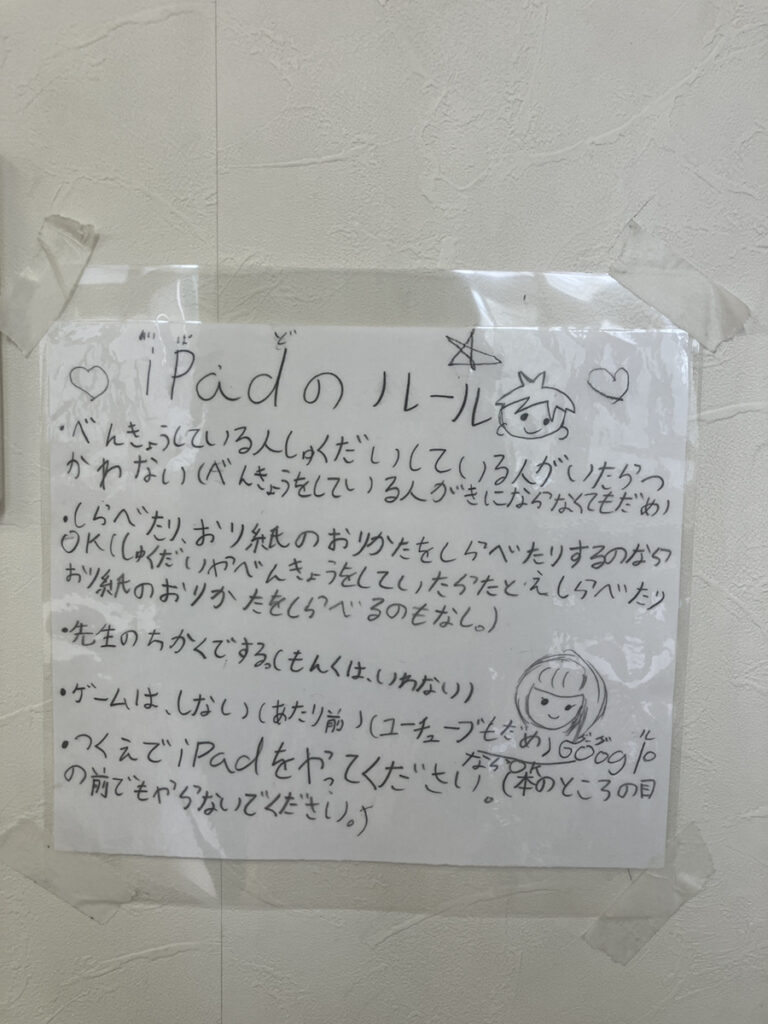 iPadのルール
あい ぱ ど
・べんきょうしている人しゅくだいしている人がいたらつ
かわない(べんきょうをしている人がきにならなくてもだめ)
・しらべたり、おり紙のおりかたをしらべたりするのなら
OK(しゅくだいやべんきょうをしていたらたとえしらべたり
おり紙のおりかたをしらべるのもなし。)
・先生のちかくでする。(もんくは、いわない)
・ゲームは、しない(あたり前)(ユーチューブもだめ)Google
グーグル
ならOK
・つくえでiPadをやってください。(本のところの目
の前でもやらないでください。)